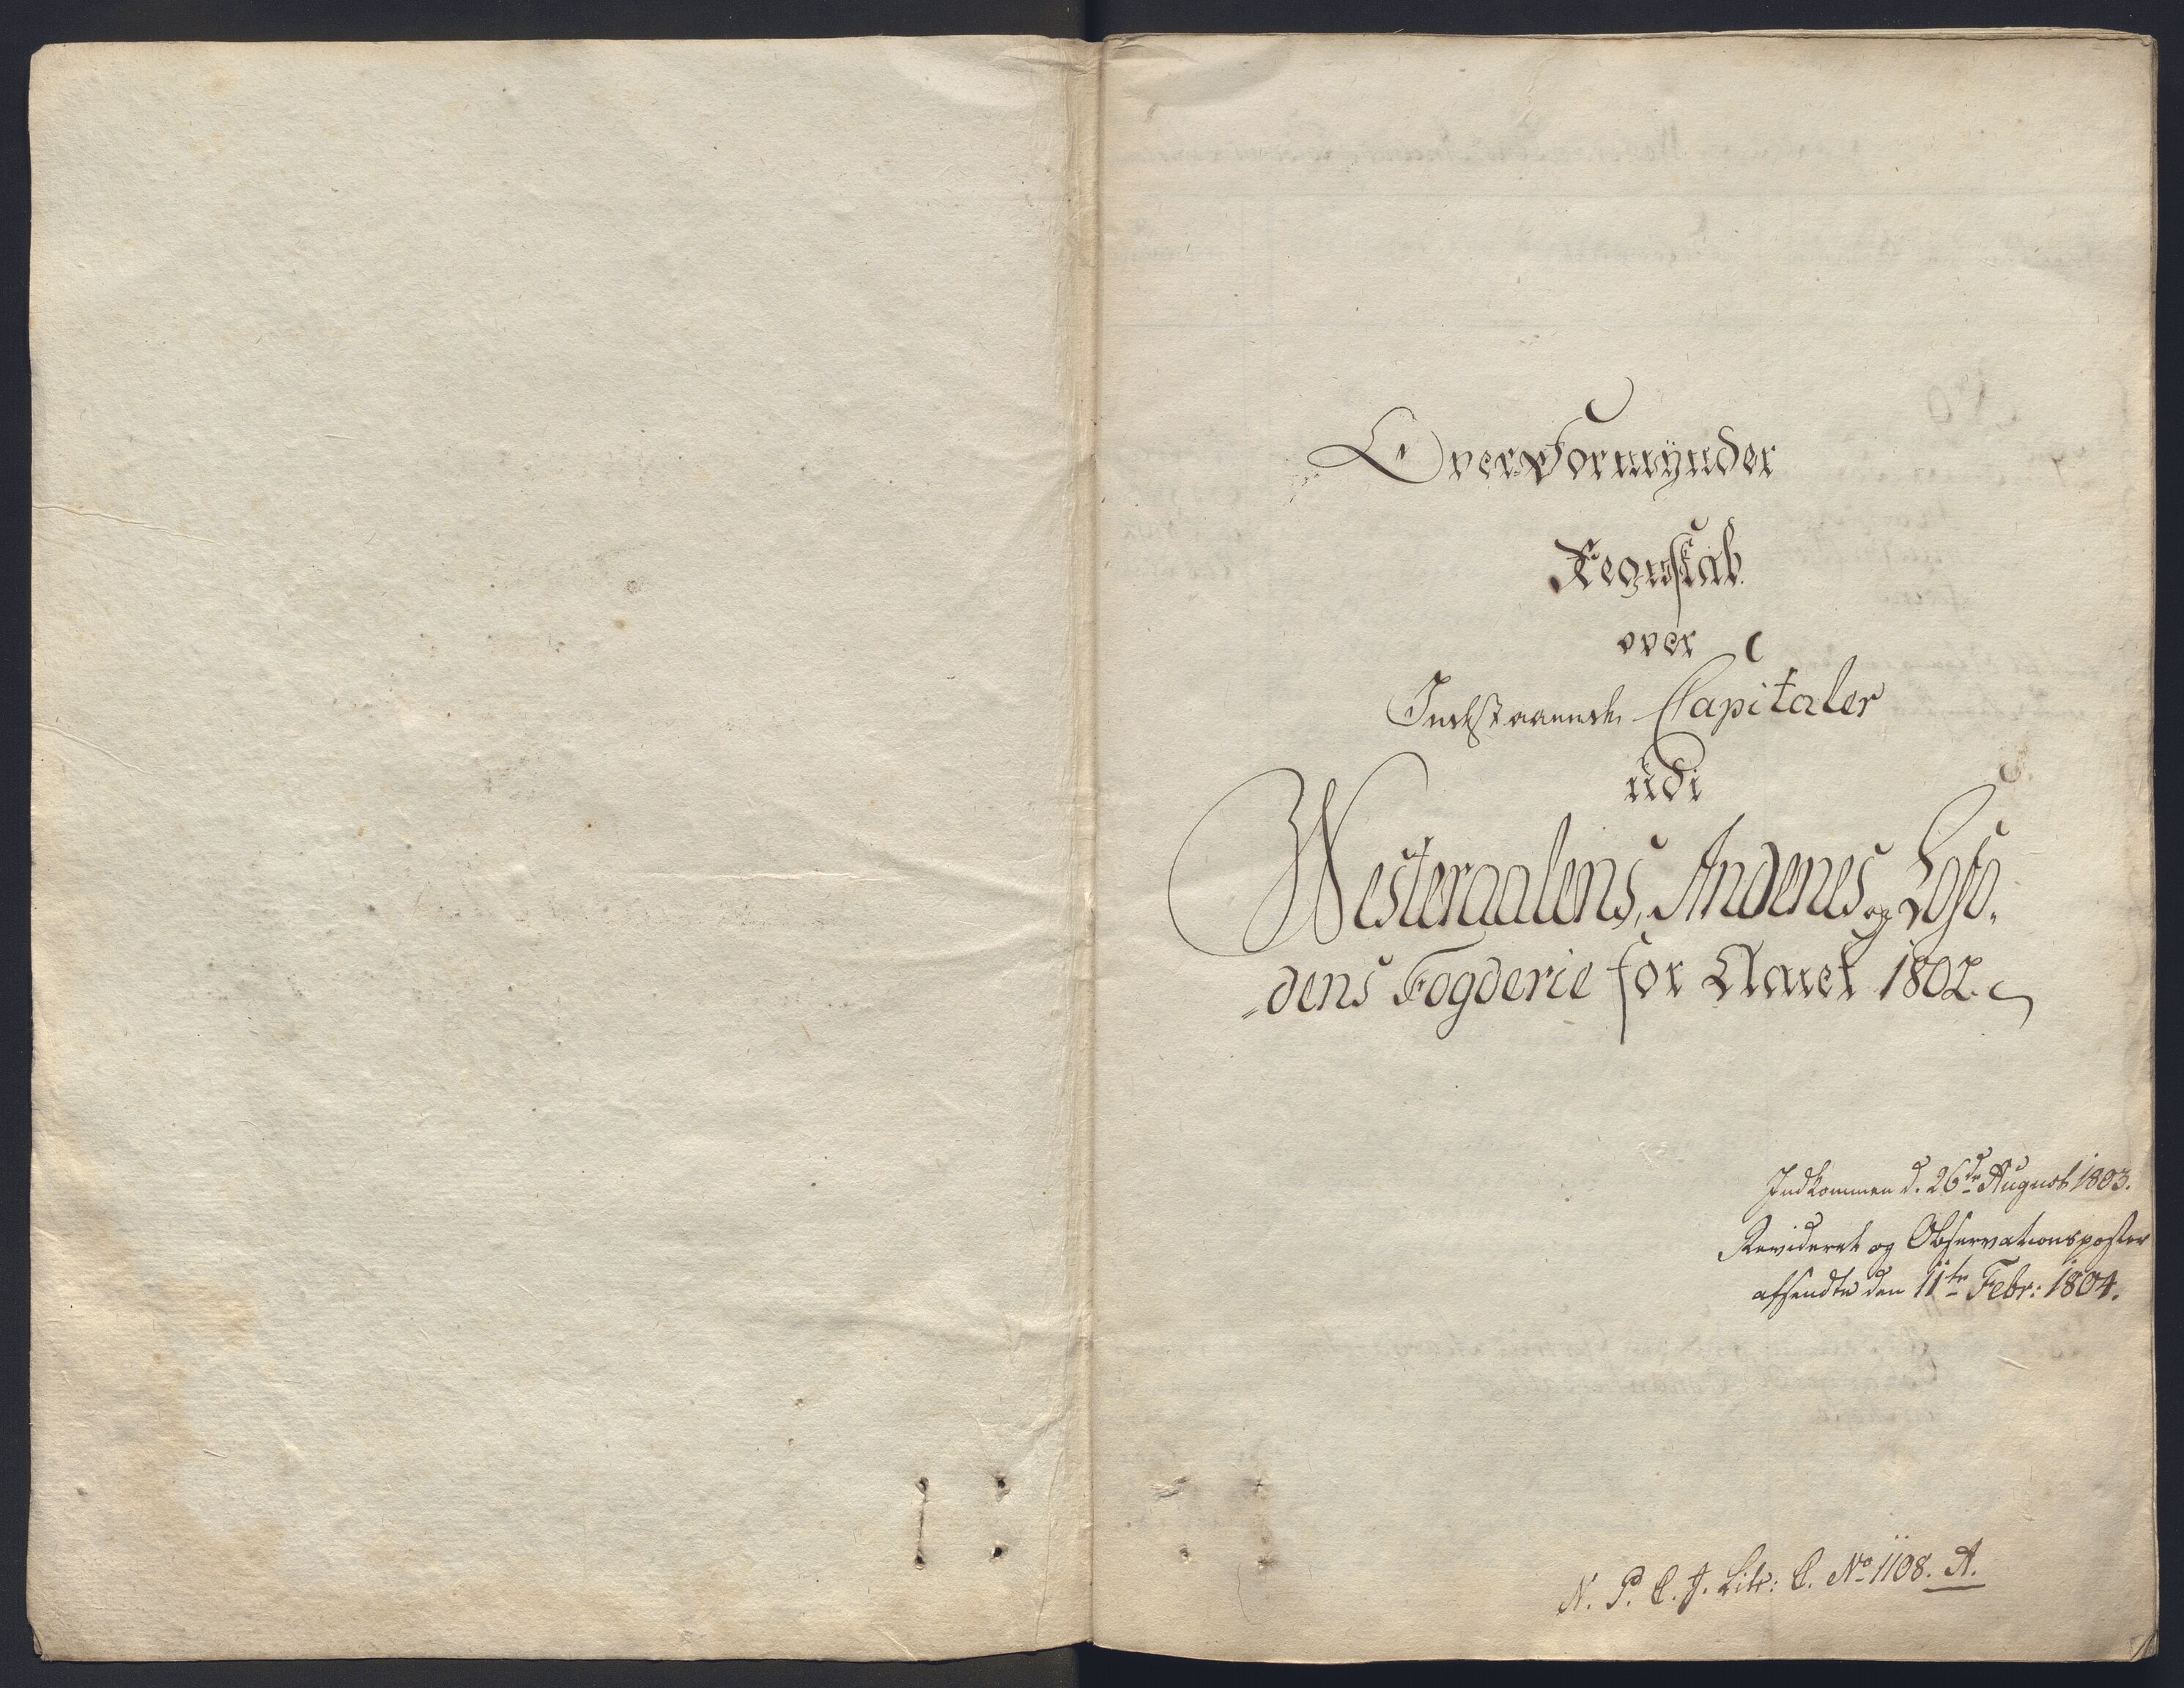 Over-Formynder
Regnskab
over
Indestaaende Capitaler
udi
Westeraalens, Andenes og Lofo-
dens Fogderie for Aaret 1802.
Indkommen d. 26de August 1803.
Revideret og Observationsposter
afsendte den 11te Febr: 1804.
N. P. C. J. Litr: C. No 1108. A.